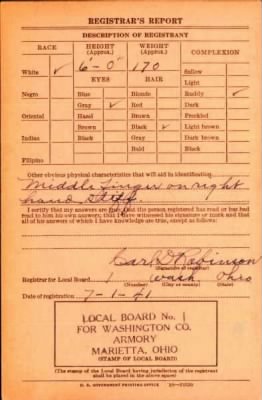 REGISTRAR'S REPORT
DESCRIPTION OF REGISTRANT
RACE HEIGHT (Approx.) WEIGHT (Approx.) COMPLEXION
White ✓ 6'-0" 170 Sallow
EYES HAIR Light
Negro Blue Blonde Ruddy ✓
Gray ✓ Red Dark
Oriental Hazel Brown Freckled
Brown Black ✓ Light brown
Indian Black Gray Dark brown
Bald Black
Filipino
Other obvious physical characteristics that will aid in identification
Middle finger on right
hand stiff
I certify that my answers are true; that the person registered has read or has had
read to him his own answers; that I have witnessed his signature or mark and that
all of his answers of which I have knowledge are true, except as follows:
Carl D Robinson
(Signature of registrar)
Registrar for Local Board 1 Wash Ohio
(Number) (City or county) (State)
Date of registration 7-1-41
LOCAL BOARD No. 1
FOR WASHINGTON CO.
ARMORY
MARIETTA, OHIO
(STAMP OF LOCAL BOARD)
(The stamp of the Local Board having jurisdiction of the registrant
shall be placed in the above space)
U. S. GOVERNMENT PRINTING OFFICE